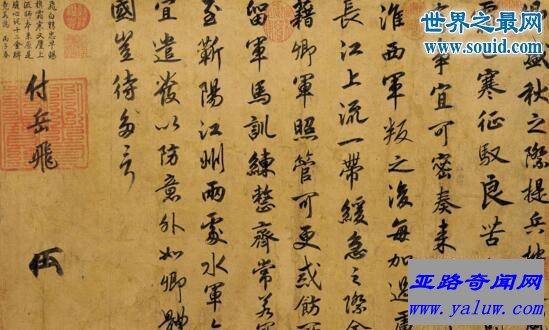 盛秋之際提兵按
已寒征馭良苦
事宜可密奏来
淮西軍叛之後每加過慮
長江上流一帶緩急之際全
藉卿軍照管可更戒飭所
留軍馬訓練整齊常若
至蘄陽江州兩處水軍亦
宜遣發以防意外如卿體
國豈待多言
付岳飛
世界之最
www.souid.com
亚路奇闻网
www.yaluw.com